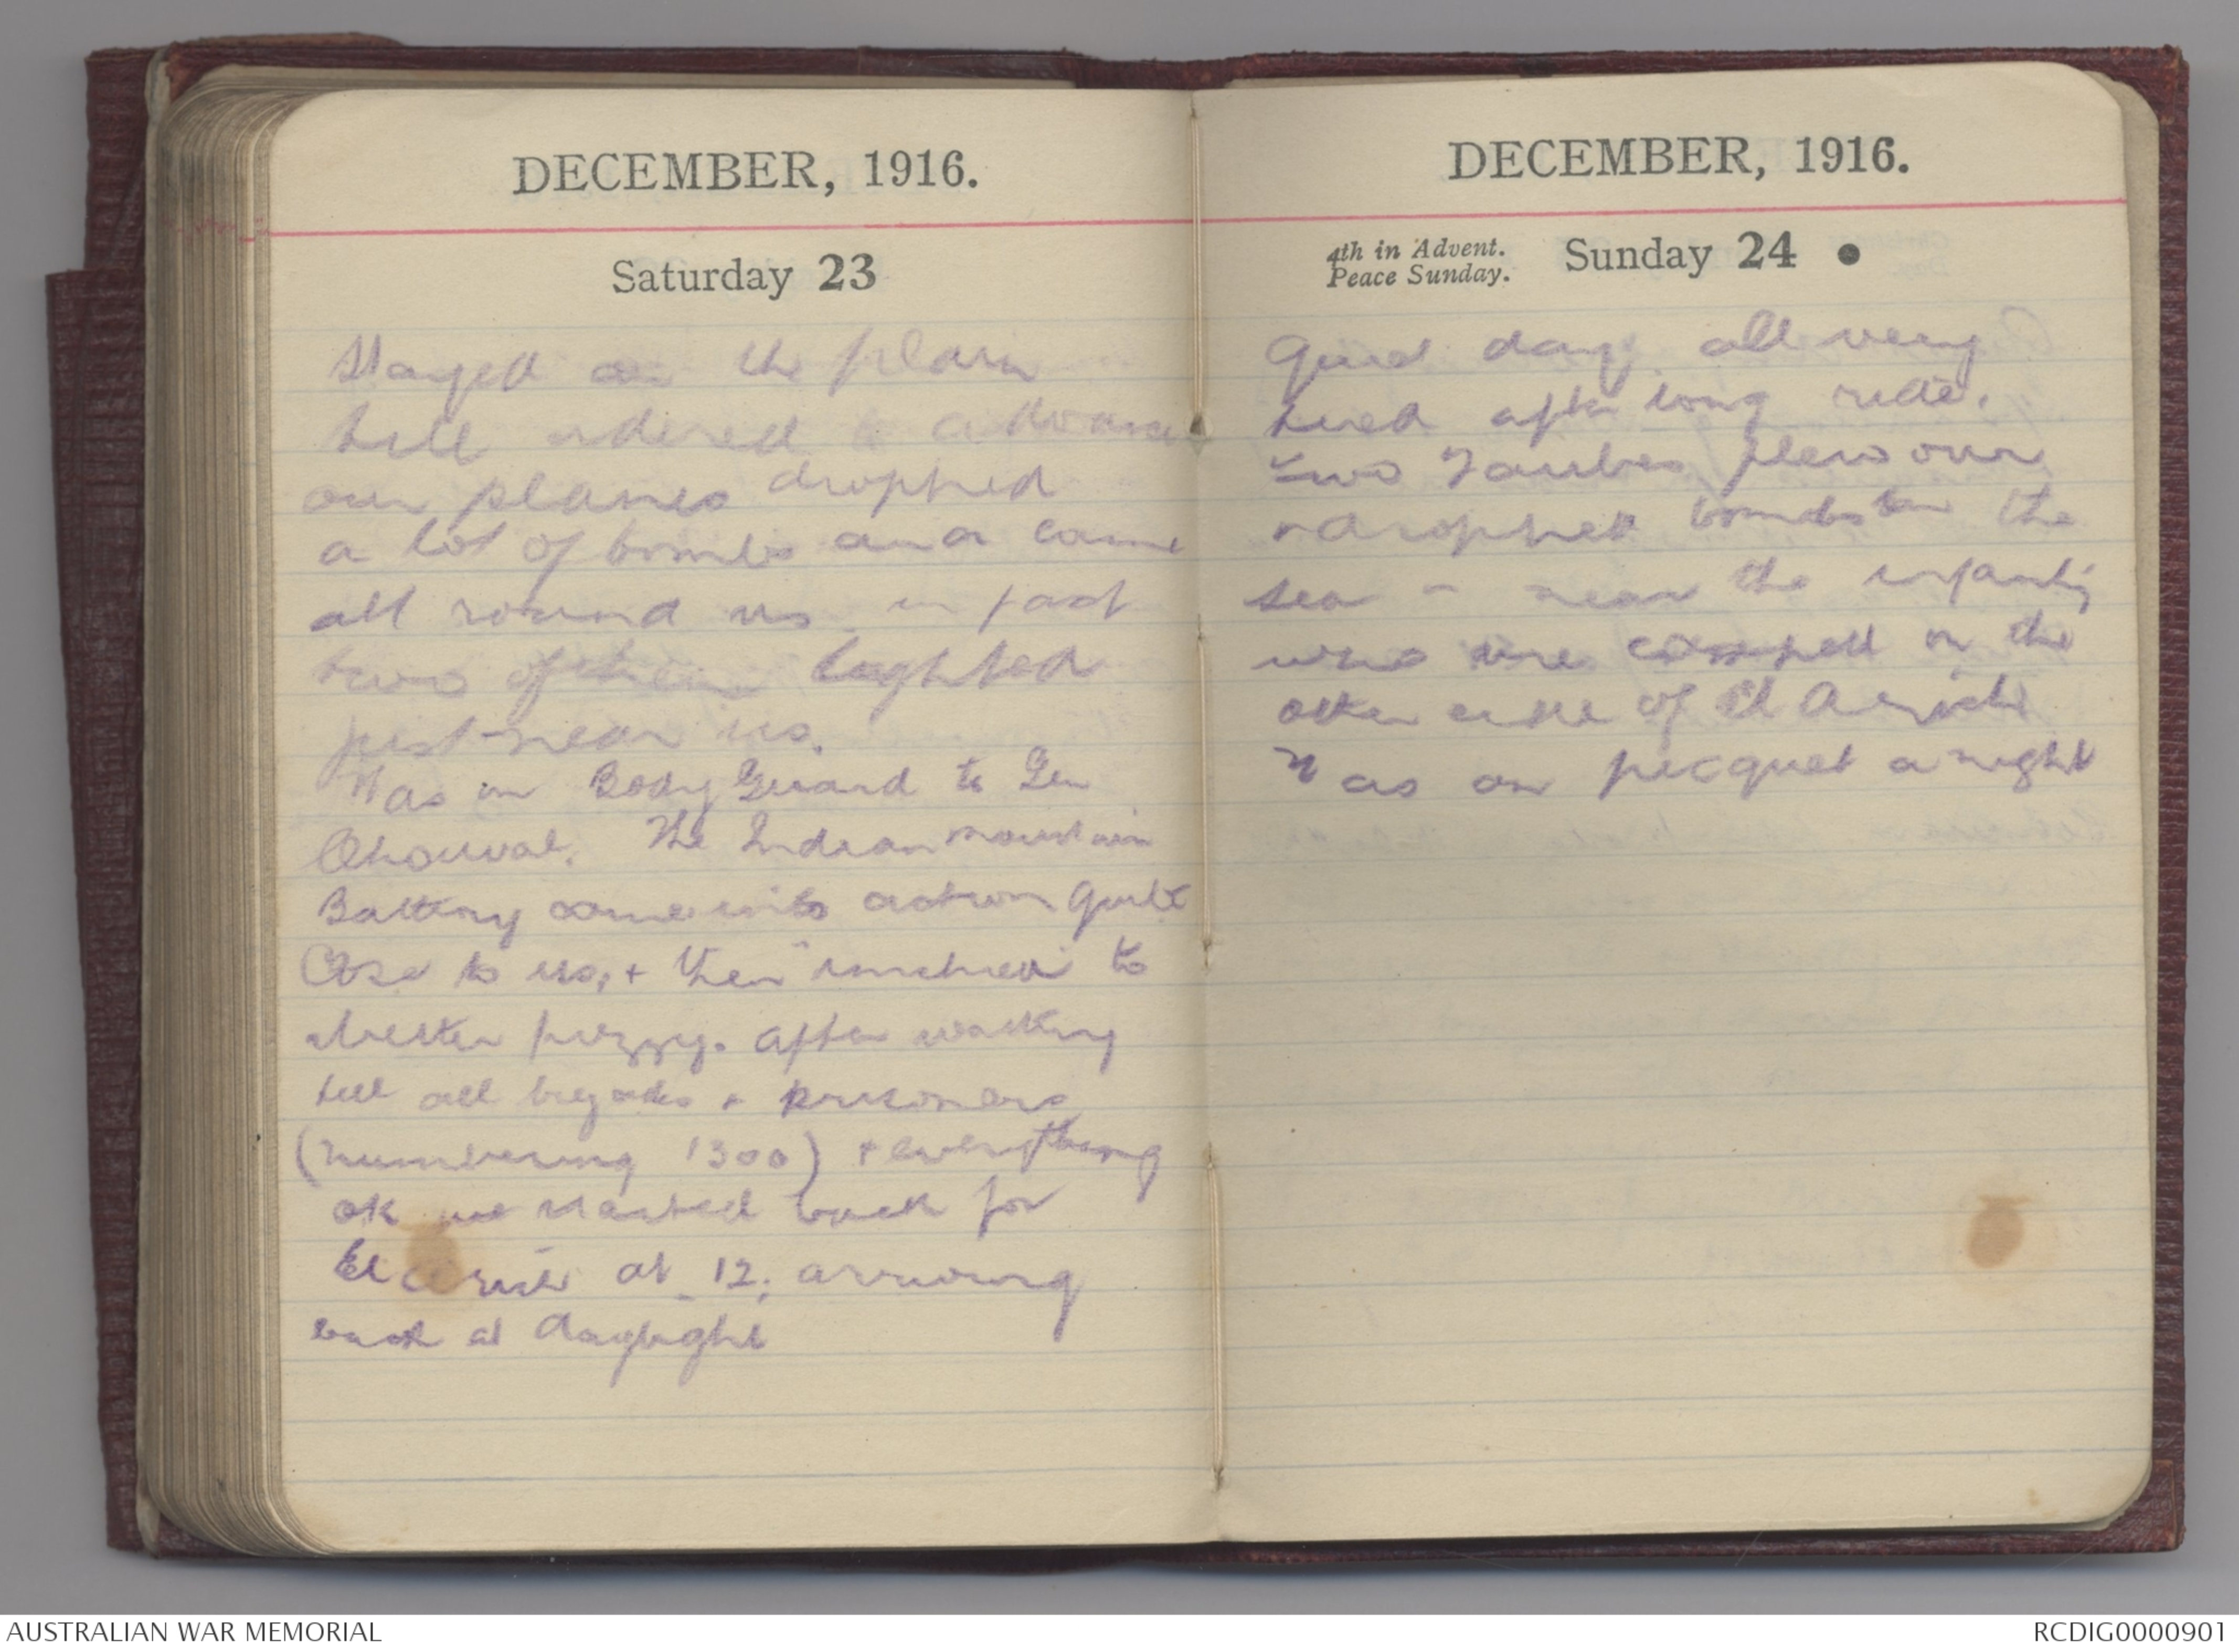 DECEMBER, 1916.
Saturday 23
Stayed on the plain
till ordered to advance
our planes dropped
a lot of bombs and came
all round us in fact
two of them lighted
just near us.
Was in Body Guard to Gen
Chauval. The Indian mountain
Battery came into action quite
Close to us, + then to
after waiting
till all brigades + prisoners
(numbering 1300) + everything
ok we started back for
El Arish at 12, arriving
back at daylight
DECEMBER, 1916.
4th in Advent.
Peace Sunday.
Sunday 24
Quiet day all very
tired after long ride.
two Taubes flew over
+ dropped bombs in the
sea - near the infantry
who were camped on the
other side of El Arish
Was on picquet a night
AUSTRALIAN WAR MEMORIAL
RCDIG0000901